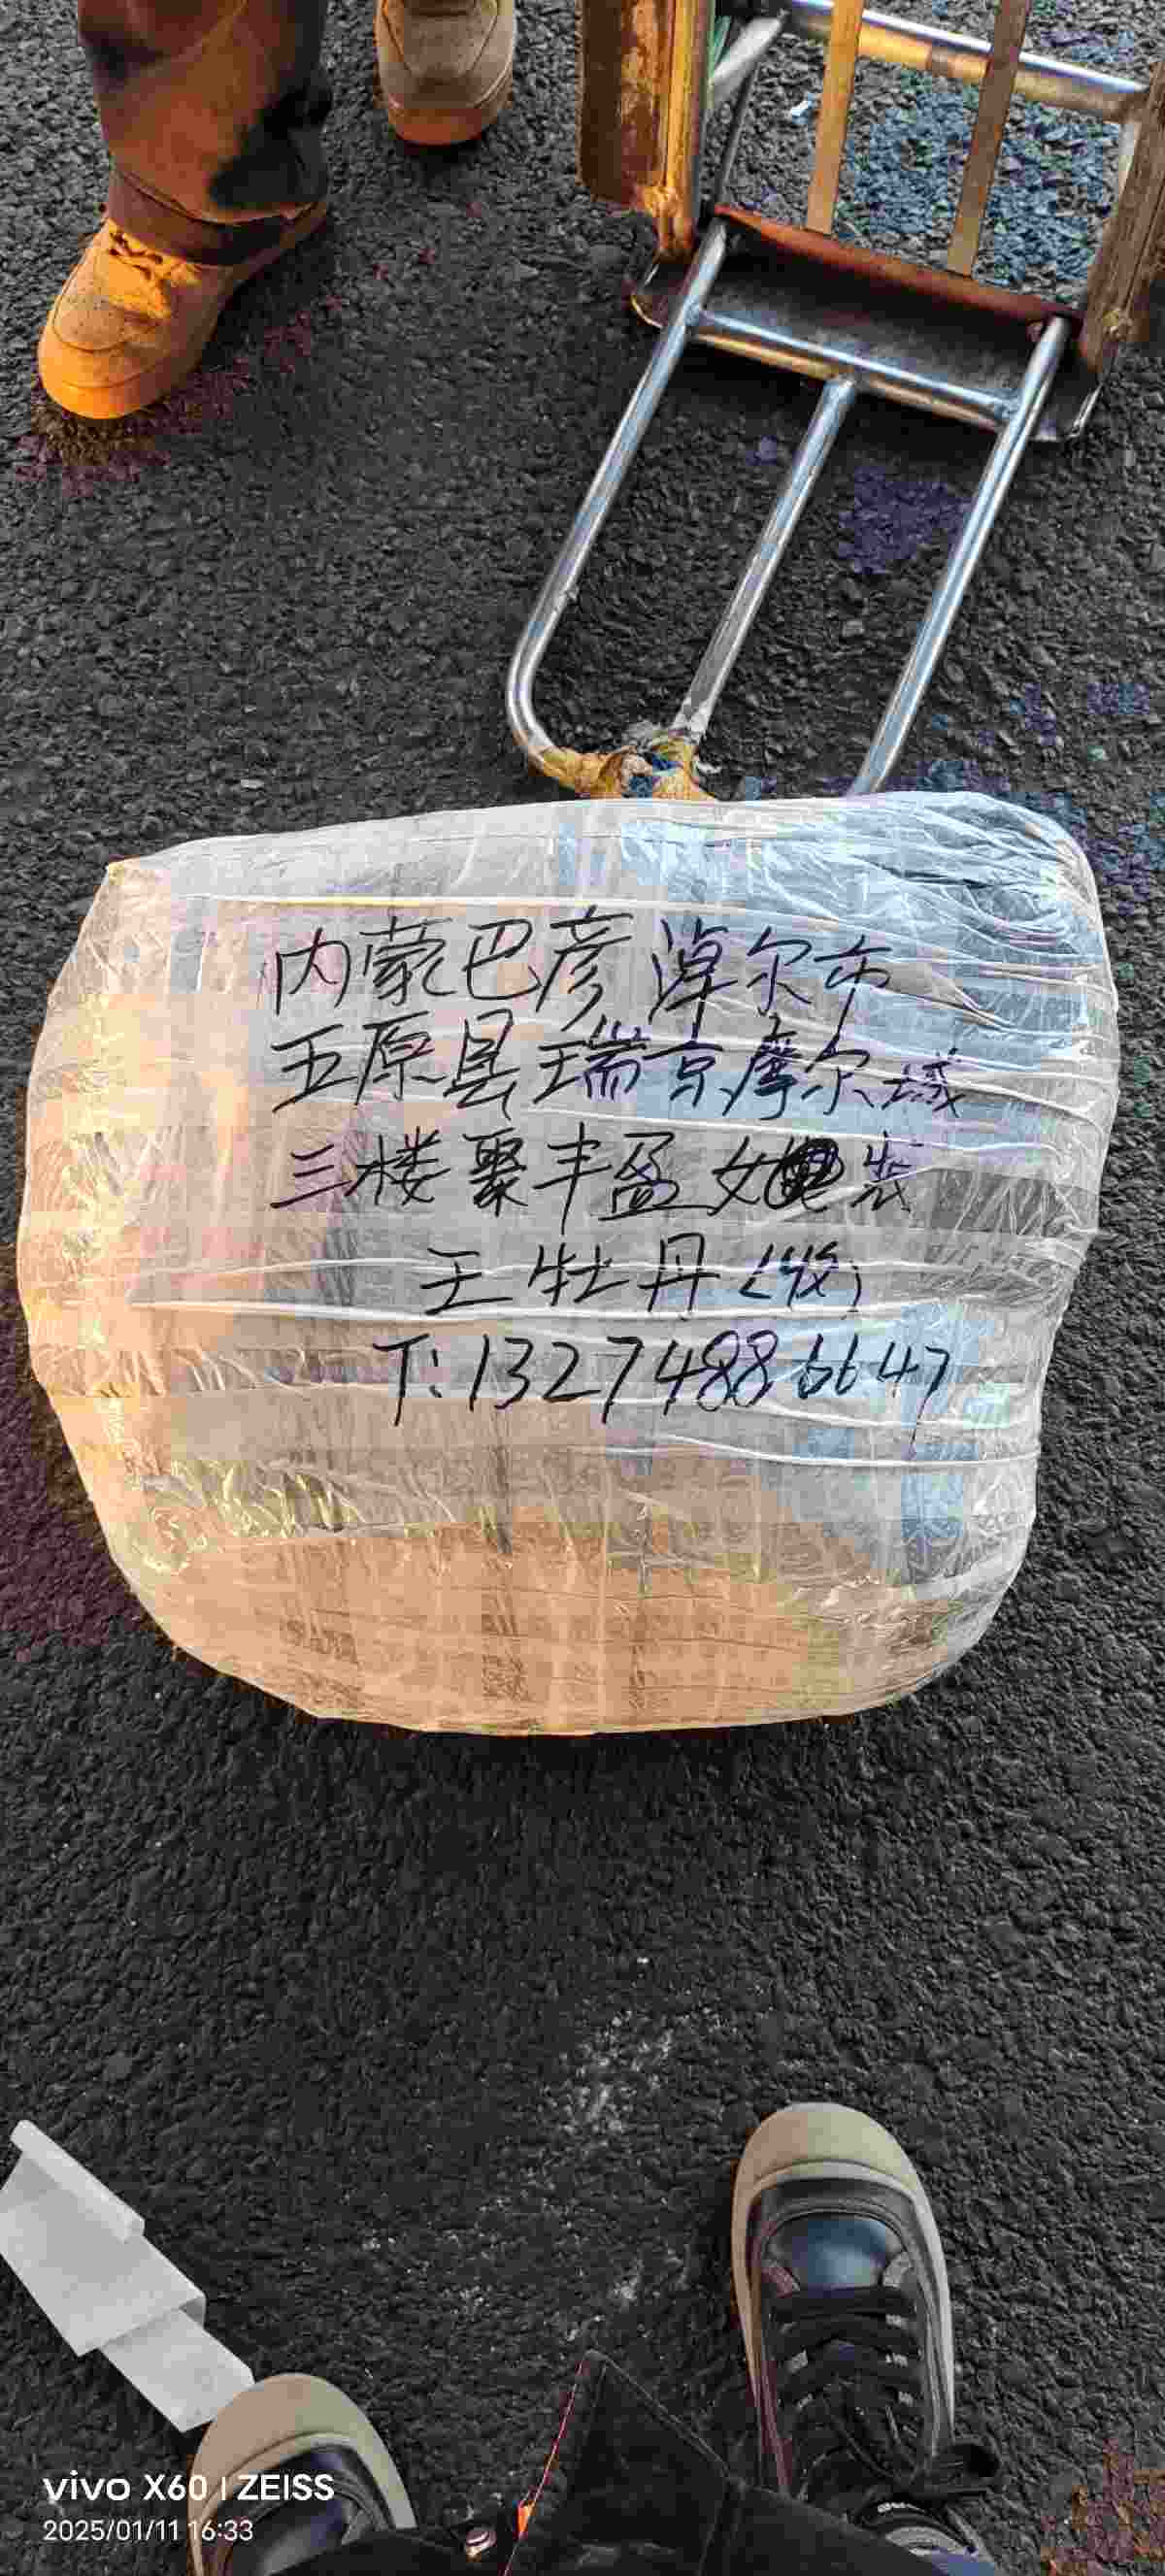 内蒙巴彦淖尔市
五原县瑞京摩尔城
三楼聚丰盈女装
王牡丹（收）
T:13274886647
vivo X60 | ZEISS
2025/01/11 16:33